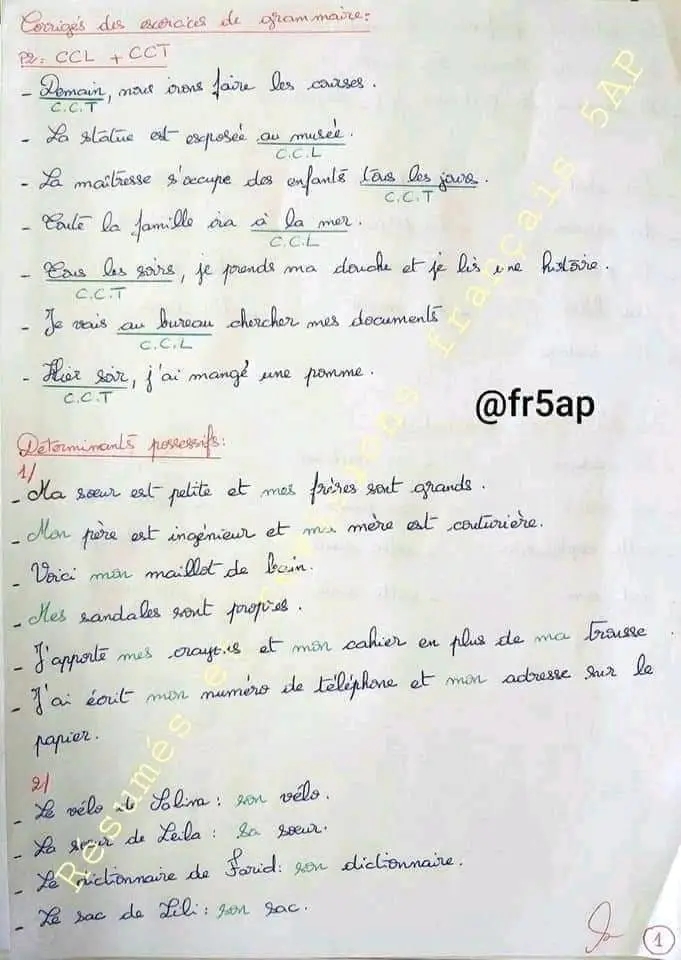 Corrigés des exercices de grammaire:
P2: CCL + CCT
- Demain, nous irons faire les courses.
C.C.T
- La statue est exposée au musée.
C.C.L
- La maîtresse s'occupe des enfants tous les jours.
C.C.T
- Toute la famille ira à la mer.
C.C.L
- Tous les soirs, je prends ma douche et je lis une histoire.
C.C.T
- Je vais au bureau chercher mes documents
C.C.L
- Hier soir, j'ai mangé une pomme.
C.C.T
@fr5ap
Déterminants possessifs:
1/
- Ma sœur est petite et mes frères sont grands.
- Mon père est ingénieur et ma mère est couturière.
- Voici mon maillot de bain.
- Mes sandales sont propres.
- J'apporte mes crayons et mon cahier en plus de ma trousse
- J'ai écrit mon numéro de téléphone et mon adresse sur le
papier.
2/
- Le vélo de Salima : son vélo.
- La sœur de Leila : Sa sœur.
- Le dictionnaire de Farid: son dictionnaire.
- Le sac de Lili : son sac.
1